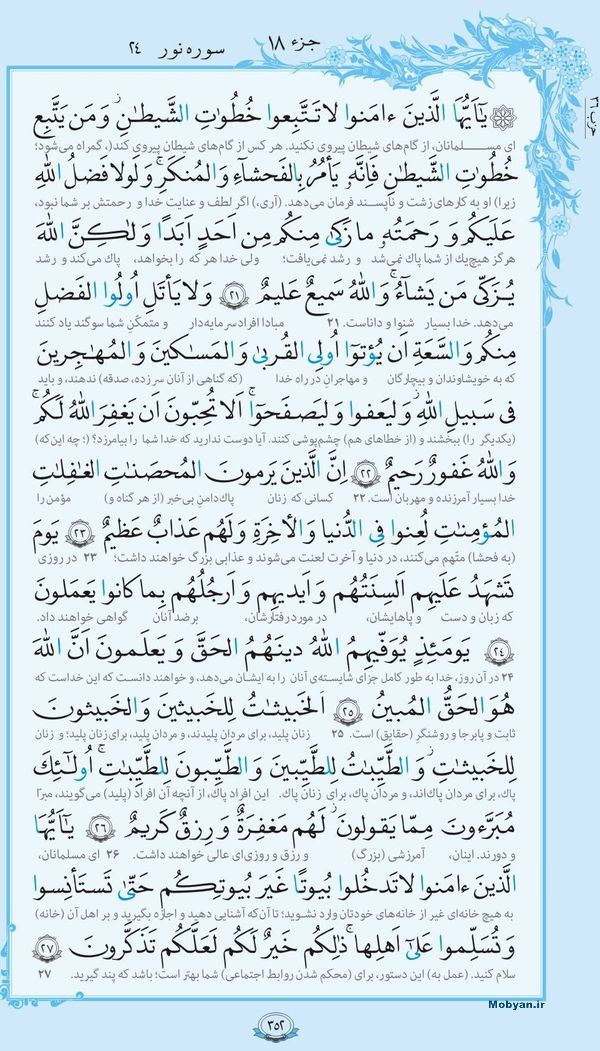 جزء ۱۸
سوره نور ۲۴
حزب ۳۶
يَٰٓأَيُّهَا الَّذينَ ءامَنوا لاتَتَّبِعوا خُطُوٰتِ الشَّيطٰنِ ۚ وَمَن يَتَّبِع
ای مسلمانان، از گام‌های شیطان پیروی نکنید. هر کس از گام‌های شیطان پیروی کند(، گمراه می‌شود؛
خُطُوٰتِ الشَّيطٰنِ فَاِنَّهُ يَأمُرُ بِالفَحشآءِ وَالمُنكَرِ ۚ وَلَولا فَضلُ اللهِ
زیرا) او به کارهای زشت و ناپسند فرمان می‌دهد. (آری،) اگر لطف و عنایت خدا و رحمتش بر شما نبود،
عَلَيكُم وَ رَحمَتُهُ ما زَكىٰ مِنكُم مِن اَحَدٍ اَبَدًا وَلٰكِنَّ اللهَ
هرگز هیچ‌یك از شما پاك نمی‌شد و رشد نمی‌یافت؛ ولی خدا هر که را بخواهد، پاك می‌کند و رشد
يُزَكّى مَن يَشآءُ ۗ وَاللهُ سَميعٌ عَليمٌ ﴿۲۱﴾ وَلايَأتَلِ اُولُوا الفَضلِ
می‌دهد. خدا بسیار شنوا و داناست. ۲۱ مبادا افراد سرمایه‌دار و متمکّنِ شما سوگند یاد کنند
مِنكُم وَالسَّعَةِ اَن يُؤتوٓا اُولِى القُربىٰ وَالمَسٰكينَ وَالمُهٰجِرينَ
که به خویشاوندان و بیچارگان و مهاجرانِ در راه خدا (که گناهی از آنان سر زده، صدقه) ندهند، و باید
فى سَبيلِ اللهِ ۖ وَليَعفوا وَليَصفَحوٓا ۗ اَلاتُحِبّونَ اَن يَغفِرَ اللهُ لَكُم ۗ
(یکدیگر را) ببخشند و (از خطاهای هم) چشم‌پوشی کنند. آیا دوست ندارید که خدا شما را بیامرزد؟ (؛ چه این‌که)
وَاللهُ غَفورٌ رَحيمٌ ﴿۲۲﴾ اِنَّ الَّذينَ يَرمونَ المُحصَنٰتِ الغٰفِلٰتِ
خدا بسیار آمرزنده و مهربان است. ۲۲ کسانی که زنان پاك‌دامنِ بی‌خبر (از هر گناه و) مؤمن را
المُؤمِنٰتِ لُعِنوا فِى الدُّنيا وَالأخِرَةِ وَلَهُم عَذابٌ عَظيمٌ ﴿۲۳﴾ يَومَ
(به فحشا) متّهم می‌کنند، در دنیا و آخرت لعنت می‌شوند و عذابی بزرگ خواهند داشت؛ ۲۳ در روزی
تَشهَدُ عَلَيهِم اَلسِنَتُهُم وَ اَيديهِم وَ اَرجُلُهُم بِما كانوا يَعمَلونَ
که زبان و دست و پاهایشان، در مورد رفتارشان، بر ضد آنان گواهی خواهند داد.
﴿۲۴﴾ يَومَئِذٍ يُوَفّيهِمُ اللهُ دينَهُمُ الحَقَّ وَ يَعلَمونَ اَنَّ اللهَ
۲۴ در آن روز، خدا به طور کامل جزای شایسته‌ی آنان را به ایشان می‌دهد، و خواهند دانست که این خداست که
هُوَ الحَقُّ المُبينُ ﴿۲۵﴾ اَلخَبيثٰتُ لِلخَبيثينَ وَالخَبيثونَ
ثابت و پابرجا و روشنگرِ (حقایق) است. ۲۵ زنان پلید، برای مردان پلیدند، و مردان پلید، برای زنان پلید؛ و زنان
لِلخَبيثٰتِ ۖ وَالطَّيِّبٰتُ لِلطَّيِّبينَ وَالطَّيِّبونَ لِلطَّيِّبٰتِ ۚ اُولٰٓئِكَ
پاك، برای مردان پاك‌اند، و مردان پاك، برای زنان پاك. این افراد پاك، از آنچه آن افراد (پلید) می‌گویند، مبرّا
مُبَرَّءونَ مِمّا يَقولونَ ۖ لَهُم مَغفِرَةٌ وَ رِزقٌ كَريمٌ ﴿۲۶﴾ يٰٓاَيُّهَا
و دورند. اینان، آمرزشی (بزرگ) و رزق و روزی‌ای عالی خواهند داشت. ۲۶ ای مسلمانان،
الَّذينَ ءامَنوا لاتَدخُلوا بُيوتًا غَيرَ بُيوتِكُم حَتّىٰ تَستَأنِسوا
به هیچ خانه‌ای غیر از خانه‌های خودتان وارد نشوید؛ تا آن‌که آشنایی دهید و اجازه بگیرید و بر اهل آن (خانه)
وَ تُسَلِّموا عَلىٰٓ اَهلِها ۚ ذٰلِكُم خَيرٌ لَكُم لَعَلَّكُم تَذَكَّرونَ ﴿۲۷﴾
سلام کنید. (عمل به) این دستور، برای (محکم شدن روابط اجتماعی) شما بهتر است؛ باشد که پند گیرید. ۲۷
۳۵۲
Mobyan.ir